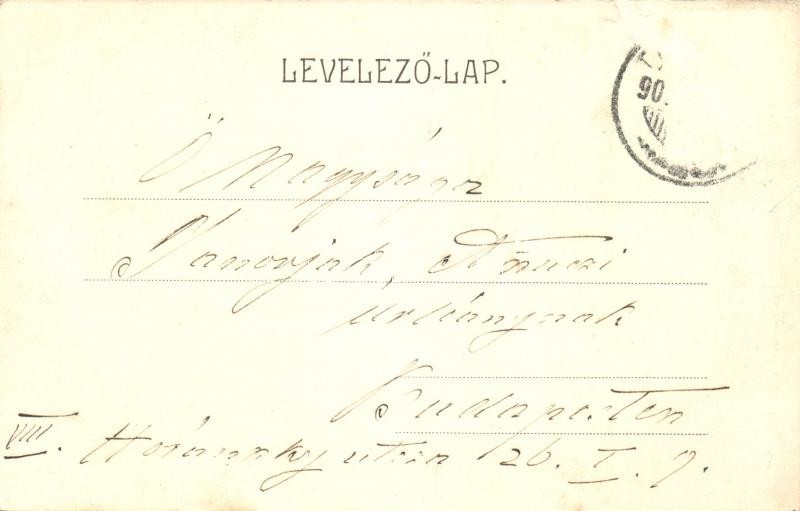 LEVELEZŐ-LAP.
90
Ő Nagysága
Janovják, Anuczi
urleánynak
Budapesten
VIII. Horánszky utcza 26. I. 7.